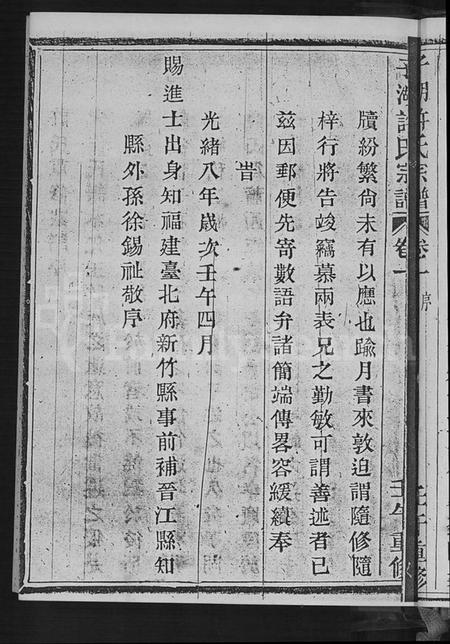 子湖許氏宗譜
卷一
序
壬午重修
牘紛繁尙未有以應也踰月書來敦迫謂隨修隨
梓行將告竣竊慕兩表兄之勤敏可謂善述者已
兹因郵便先寄數語弁諸簡端傳畧容緩續奉
旹
光緒八年歲次壬午四月
賜進士出身知福建臺北府新竹縣事前補晉江縣知
縣外孫徐錫祉敬序